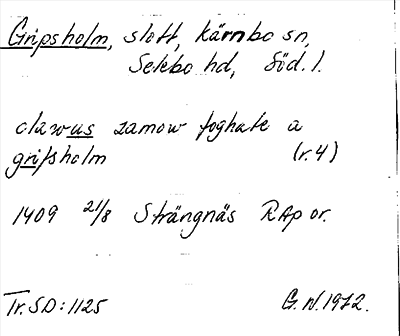 Gripsholm, slott, Kärnbo sn,
Selebo hd, Söd. l.
clawus zamow foghate a
gripsholm (r. 4)
1409 21/8 Strängnäs RAp or.
Tr. SD: 1125 G. N. 1972.